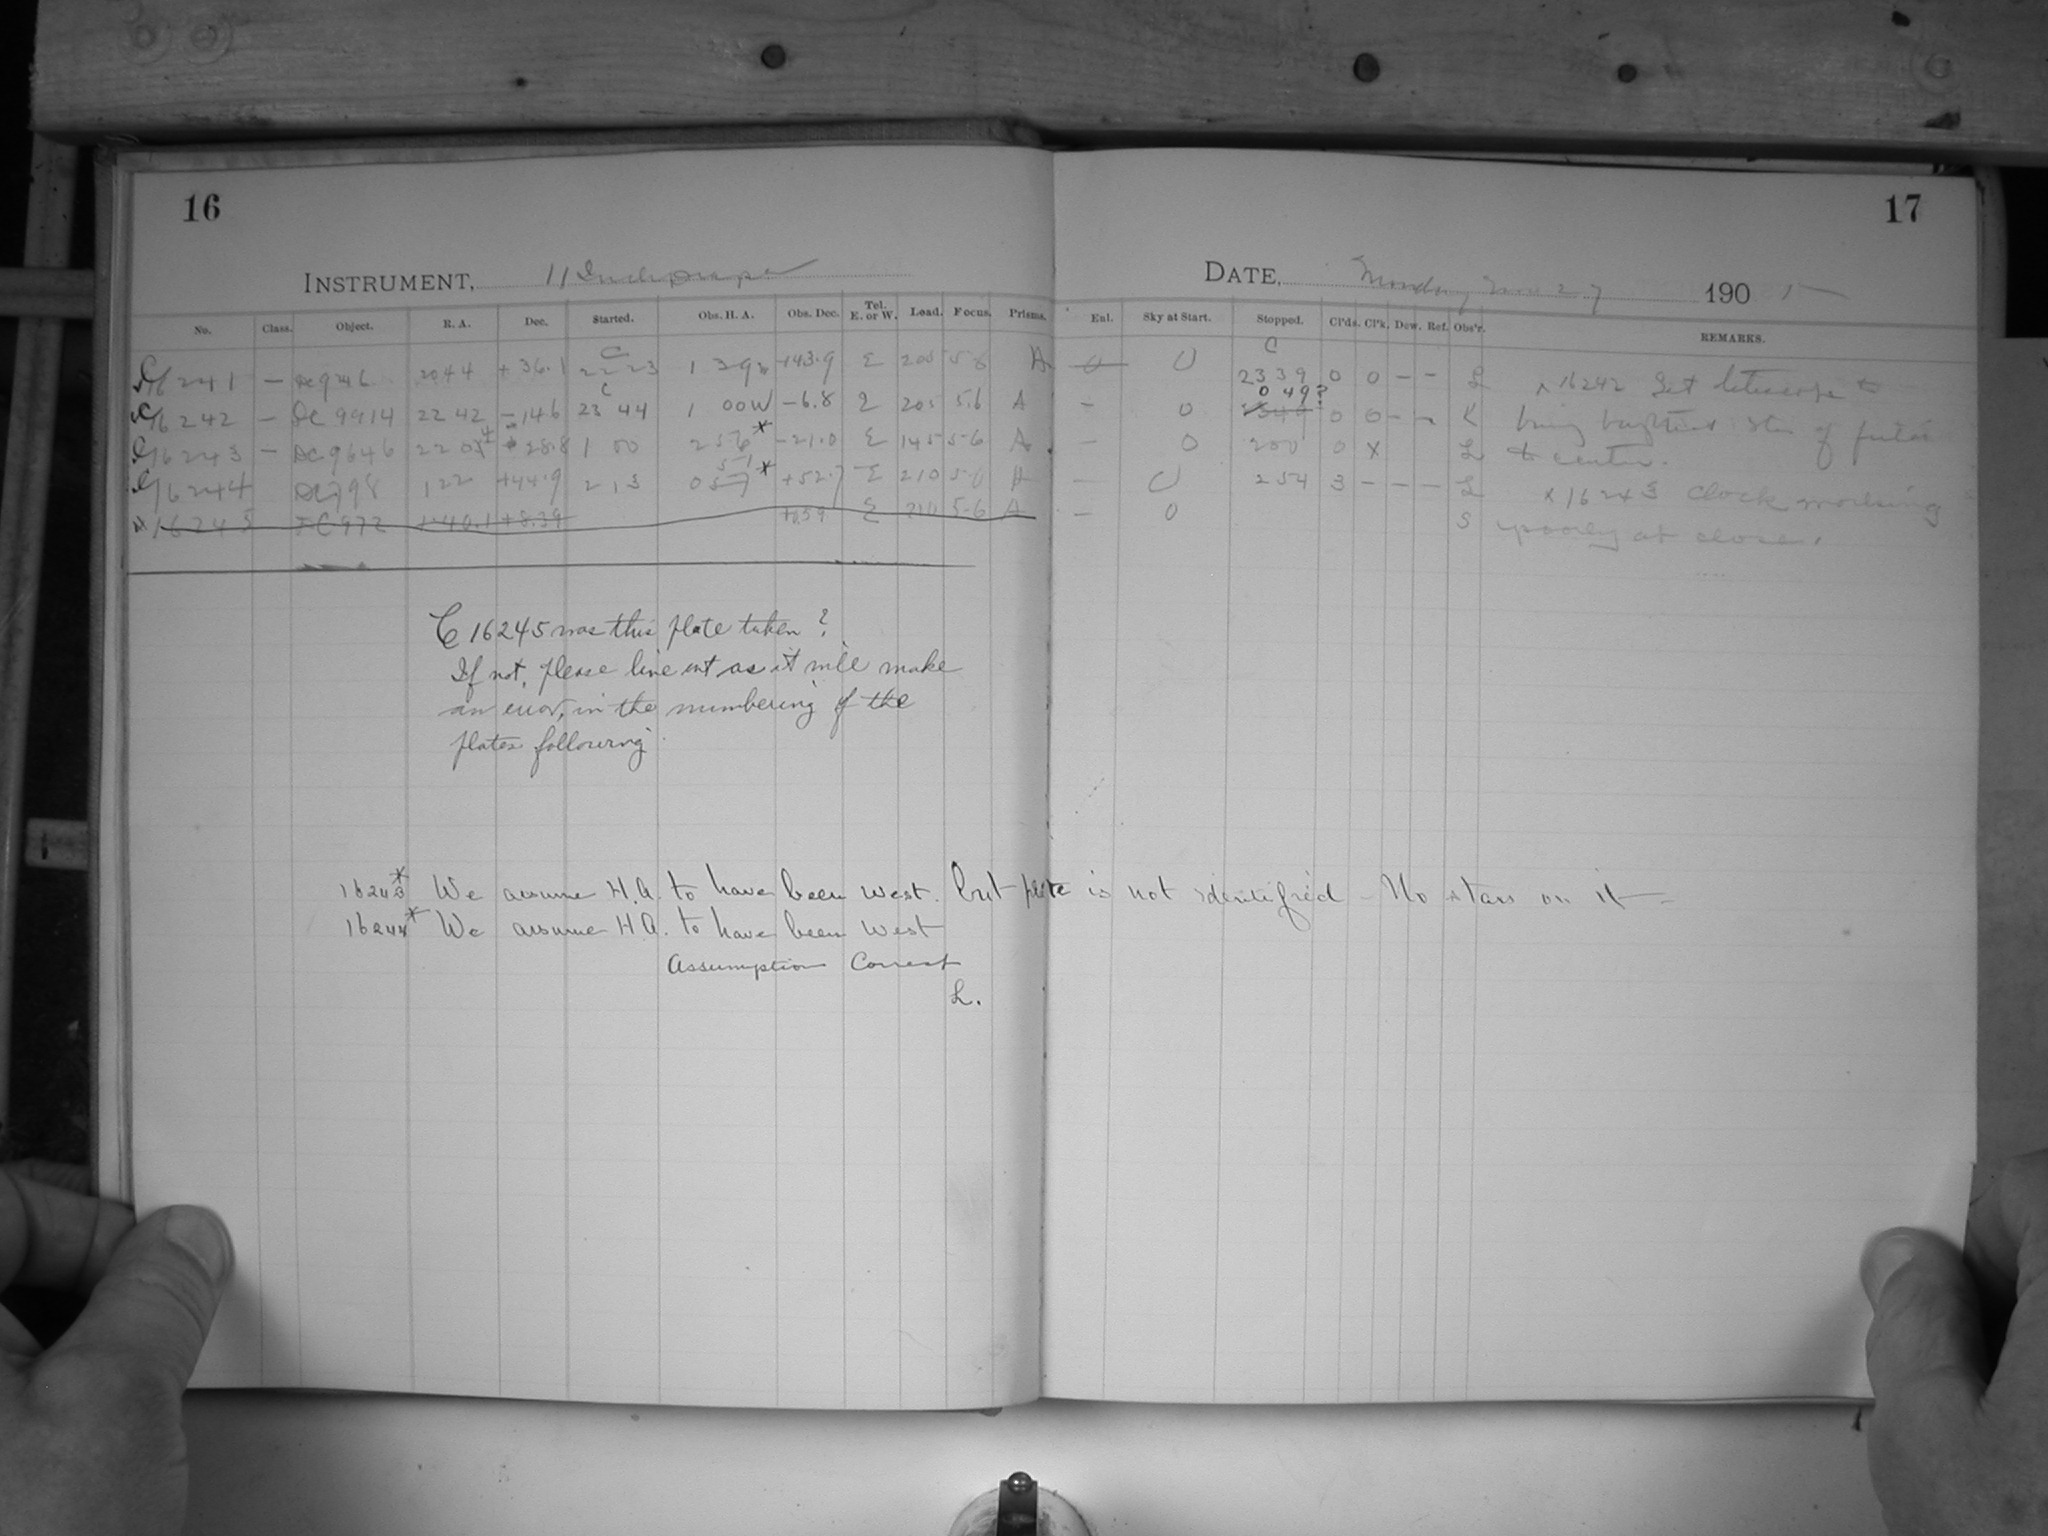 16
17
INSTRUMENT, 11 Inch Draper
DATE, Monday Nov 27 1905
No. Class. Object. R. A. Dec. Started. Obs. H. A. Obs. Dec. Tel. E. or W. Load. Focus. Prisms. Enl. Sky at Start. Stopped. Cl'ds. Cl'k. Dew. Ref. Obs'r. REMARKS.
16241 — DC 946 2044 +36.1 C 22 23 1 39 +43.9 E 205 5-6 A 0 C 2339 0 0 - - L
16242 — DC 9914 22 42 -14.6 C 23 44 1 00W -6.8 E 205 5.6 A - 0 0 49? 0 0 - - K
16243 — DC 9646 220 28.8 1 00 256* -21.0 E 145 5-6 A - 0 200 0 X L
16244 DC 798 122 +44.9 213 0 51* +52.7 E 210 5-6 A - 254 3 - - - L
16245 DC 972 1 40.1 +8.39 E 210 5-6 A - 0 S
x 16242 Set telescope to
bring brightest star of field
to center.
x 16243 Clock working
poorly at close.
C 16245 was this plate taken?
If not, please line out as it will make
an error, in the numbering of the
plates following.
16243* We assume H.A. to have been west. but plate is not identified - No stars on it -
16244* We assume H.A. to have been west
Assumption Correct
L.